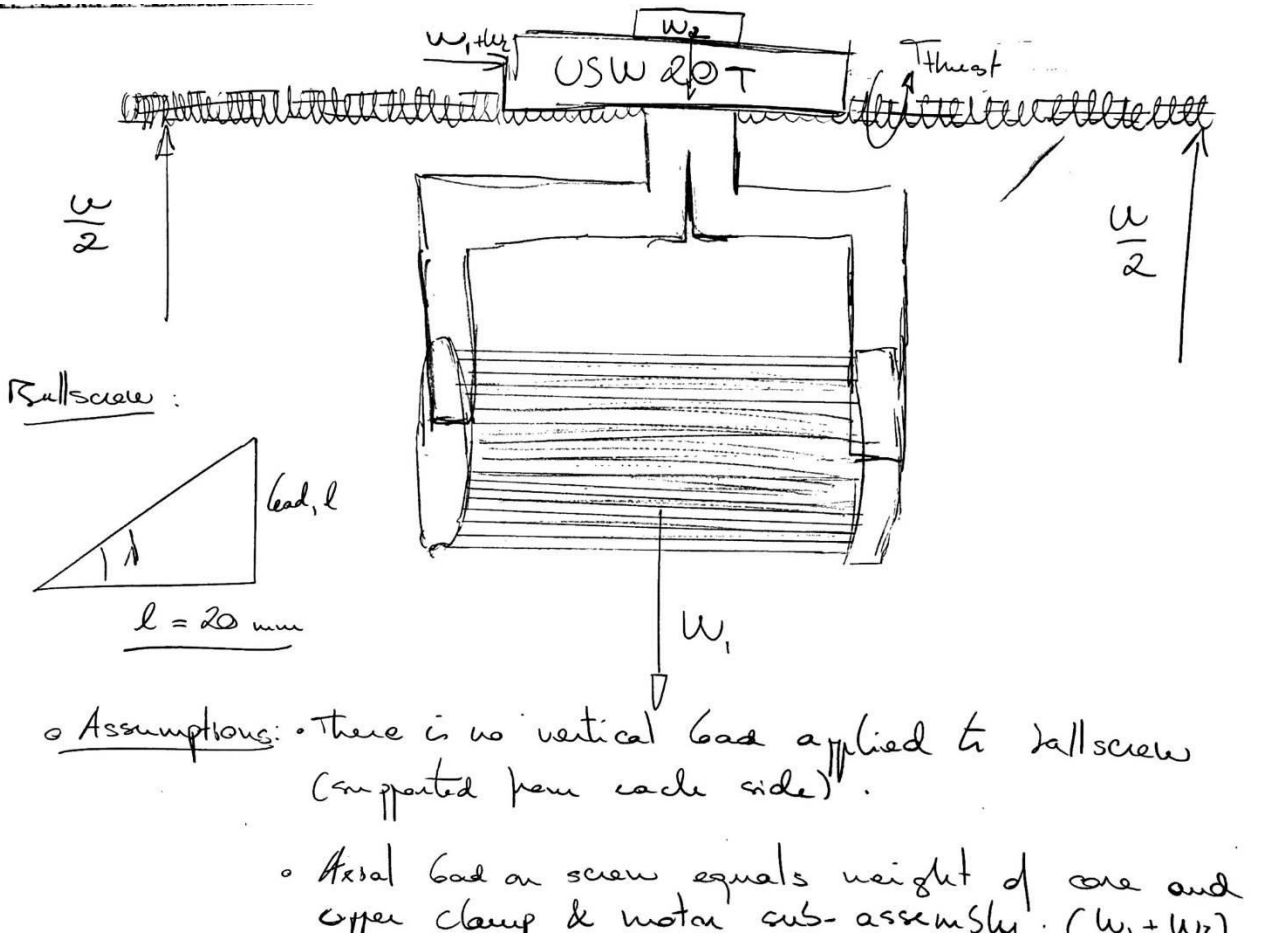 W₁+W₂
W₂
USW 20T
Tthrust
W/2
W/2
Ballscrew :
lead, l
λ
l = 20 mm
W₁
Assumptions: • There is no vertical load applied to ballscrew
(supported from each side).
• Axial load on screw equals weight of core and
upper clamp & motor sub-assembly. (W₁ + W₂)